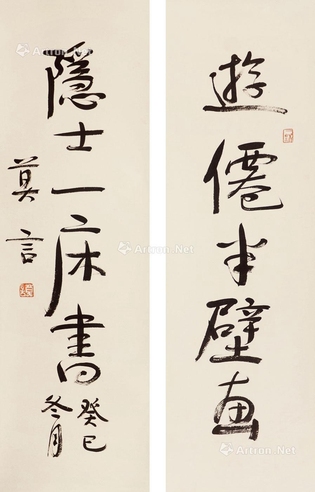 遊僊半壁画
隱士一床書
癸巳
冬月
莫言
Artron.Net
Artron.Net
Artron.Net
Artron.Net
Artron.Net